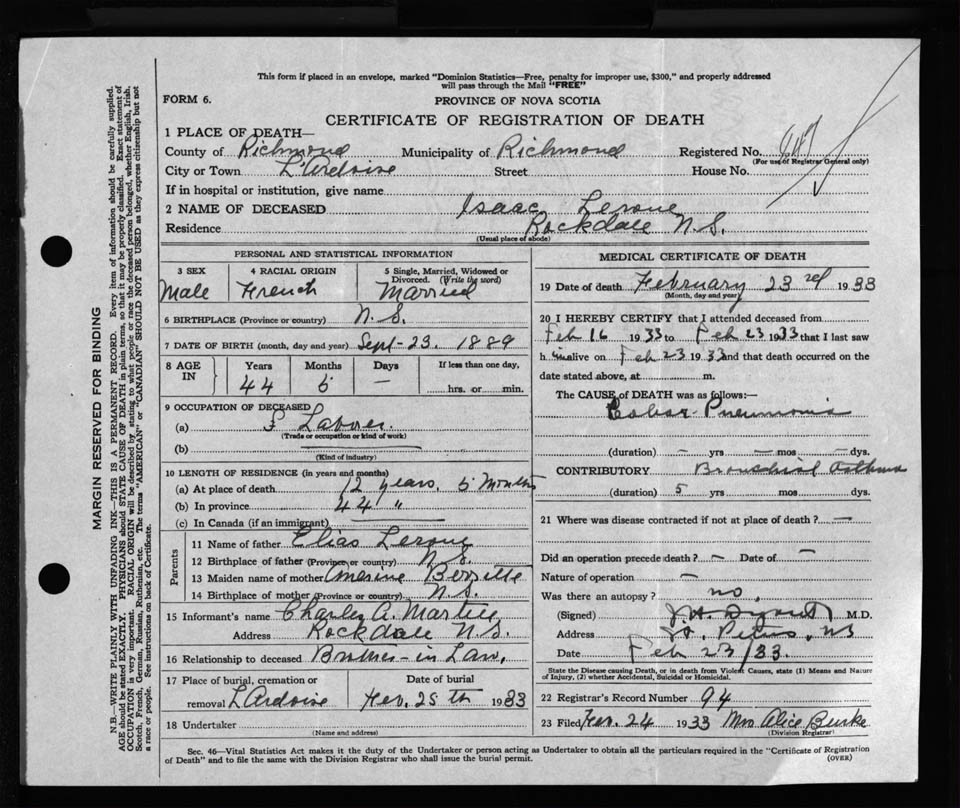 This form if placed in an envelope, marked "Dominion Statistics—Free, penalty for improper use, $300," and properly addressed
will pass through the Mail "FREE"
FORM 6.
PROVINCE OF NOVA SCOTIA
CERTIFICATE OF REGISTRATION OF DEATH
1 PLACE OF DEATH—
County of Richmond Municipality of Richmond Registered No.
(For use of Registrar General only)
City or Town L'Ardoise Street House No.
If in hospital or institution, give name
2 NAME OF DECEASED Isaac
Residence Rockdale N.S.
(Usual place of abode)
MARGIN RESERVED FOR BINDING
N.B.—WRITE PLAINLY WITH UNFADING INK—THIS IS A PERMANENT RECORD. Every item of information should be carefully supplied.
AGE should be stated EXACTLY. PHYSICIANS should STATE CAUSE OF DEATH in plain terms, so that it may be properly classified. Exact statement of
OCCUPATION is very important. RACIAL ORIGIN will be described by stating to what people or race the deceased person belonged, whether English, Irish,
Scotch, French, German, Russian, Ruthenian, etc. The terms "AMERICAN" or "CANADIAN" SHOULD NOT BE USED as they express citizenship but not
a race or people. See instructions on back of Certificate.
PERSONAL AND STATISTICAL INFORMATION
3 SEX 4 RACIAL ORIGIN 5 Single, Married, Widowed or
Divorced. (Write the word)
Male French Married
6 BIRTHPLACE (Province or country) N.S.
7 DATE OF BIRTH (month, day and year) Sept-23. 1889
8 AGE IN Years Months Days If less than one day,
44 5 — hrs. or min.
9 OCCUPATION OF DECEASED
(a) Laborer
(Trade or occupation or kind of work)
(b)
(Kind of industry)
10 LENGTH OF RESIDENCE (in years and months)
(a) At place of death 12 years, 5 Months
(b) In province 44 "
(c) In Canada (if an immigrant)
Parents
11 Name of father Elias
12 Birthplace of father (Province or country) N.S.
13 Maiden name of mother
14 Birthplace of mother (Province or country) N.S.
15 Informant's name Charles A. Martell
Address Rockdale N.S.
16 Relationship to deceased Brother-in Law,
17 Place of burial, cremation or Date of burial
removal L'Ardoise Fev. 25th 1933
18 Undertaker
(Name and address)
MEDICAL CERTIFICATE OF DEATH
19 Date of death February 23rd 1933
(Month, day and year)
20 I HEREBY CERTIFY that I attended deceased from
Feb 16 1933 to Feb 23 1933 that I last saw
h im alive on Feb 23 1933 and that death occurred on the
date stated above, at — m.
The CAUSE OF DEATH was as follows:—
Lobar Pneumonia
(duration) — yrs — mos — dys.
CONTRIBUTORY Bronchial Asthma
(duration) 5 yrs mos dys.
21 Where was disease contracted if not at place of death? —
Did an operation precede death? — Date of —
Nature of operation —
Was there an autopsy? no.
(Signed) M.D.
Address St. Peters, NS
Date Feb 23/33.
State the Disease causing Death, or in death from Violent Causes, state (1) Means and Nature
of Injury, (2) whether Accidental, Suicidal or Homicidal.
22 Registrar's Record Number 94
23 Filed Fev. 24 1933 Mrs Alice Burke
(Division Registrar)
Sec. 46—Vital Statistics Act makes it the duty of the Undertaker or person acting as Undertaker to obtain all the particulars required in the "Certificate of Registration
of Death" and to file the same with the Division Registrar who shall issue the burial permit.
(OVER)